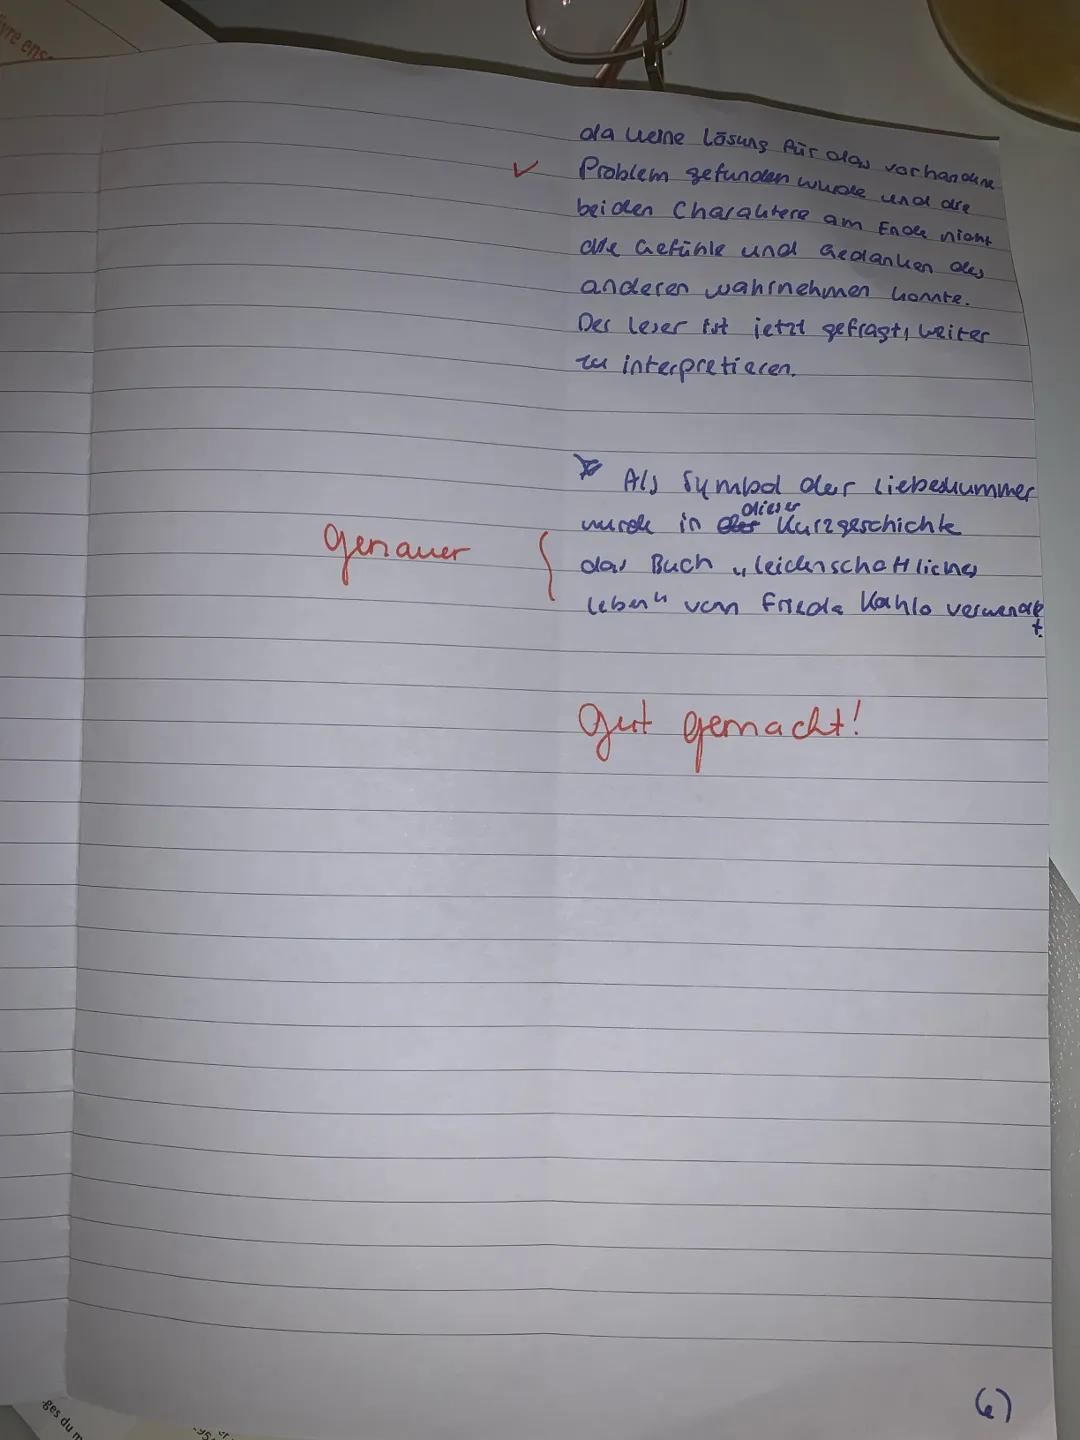 ivre ens
da keine Lösung für das vorhandene
✓ Problem gefunden wurde und die
beiden Charaktere am Ende nicht
die Gefühle und Gedanken des
anderen wahrnehmen konnte.
Der Leser ist jetzt gefragt, weiter
zu interpretieren.
Als Symbol der Liebeskummer
dieser
wurde in der Kurzgeschichte
genauer
das Buch „leidenschaftliches
leben" von Frieda Kahlo verwendet
gut gemacht!
ges du m
6)